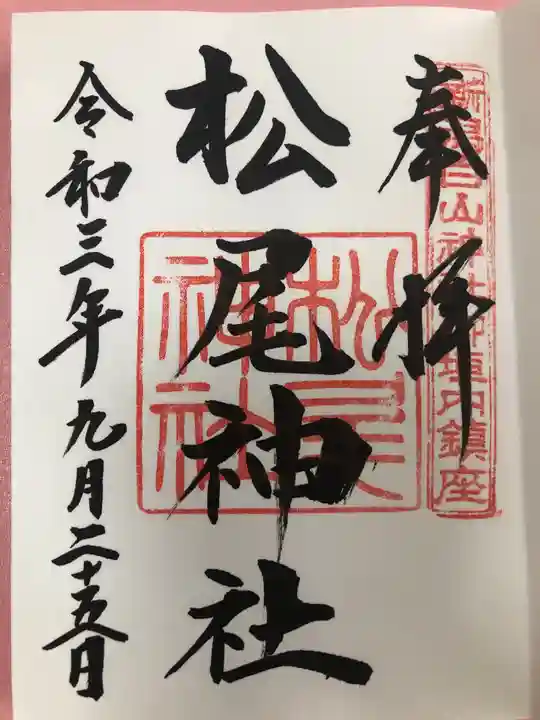 奉拝
新潟白山神社御垣内鎮座
松尾神社
松尾神社
令和三年九月二十五日